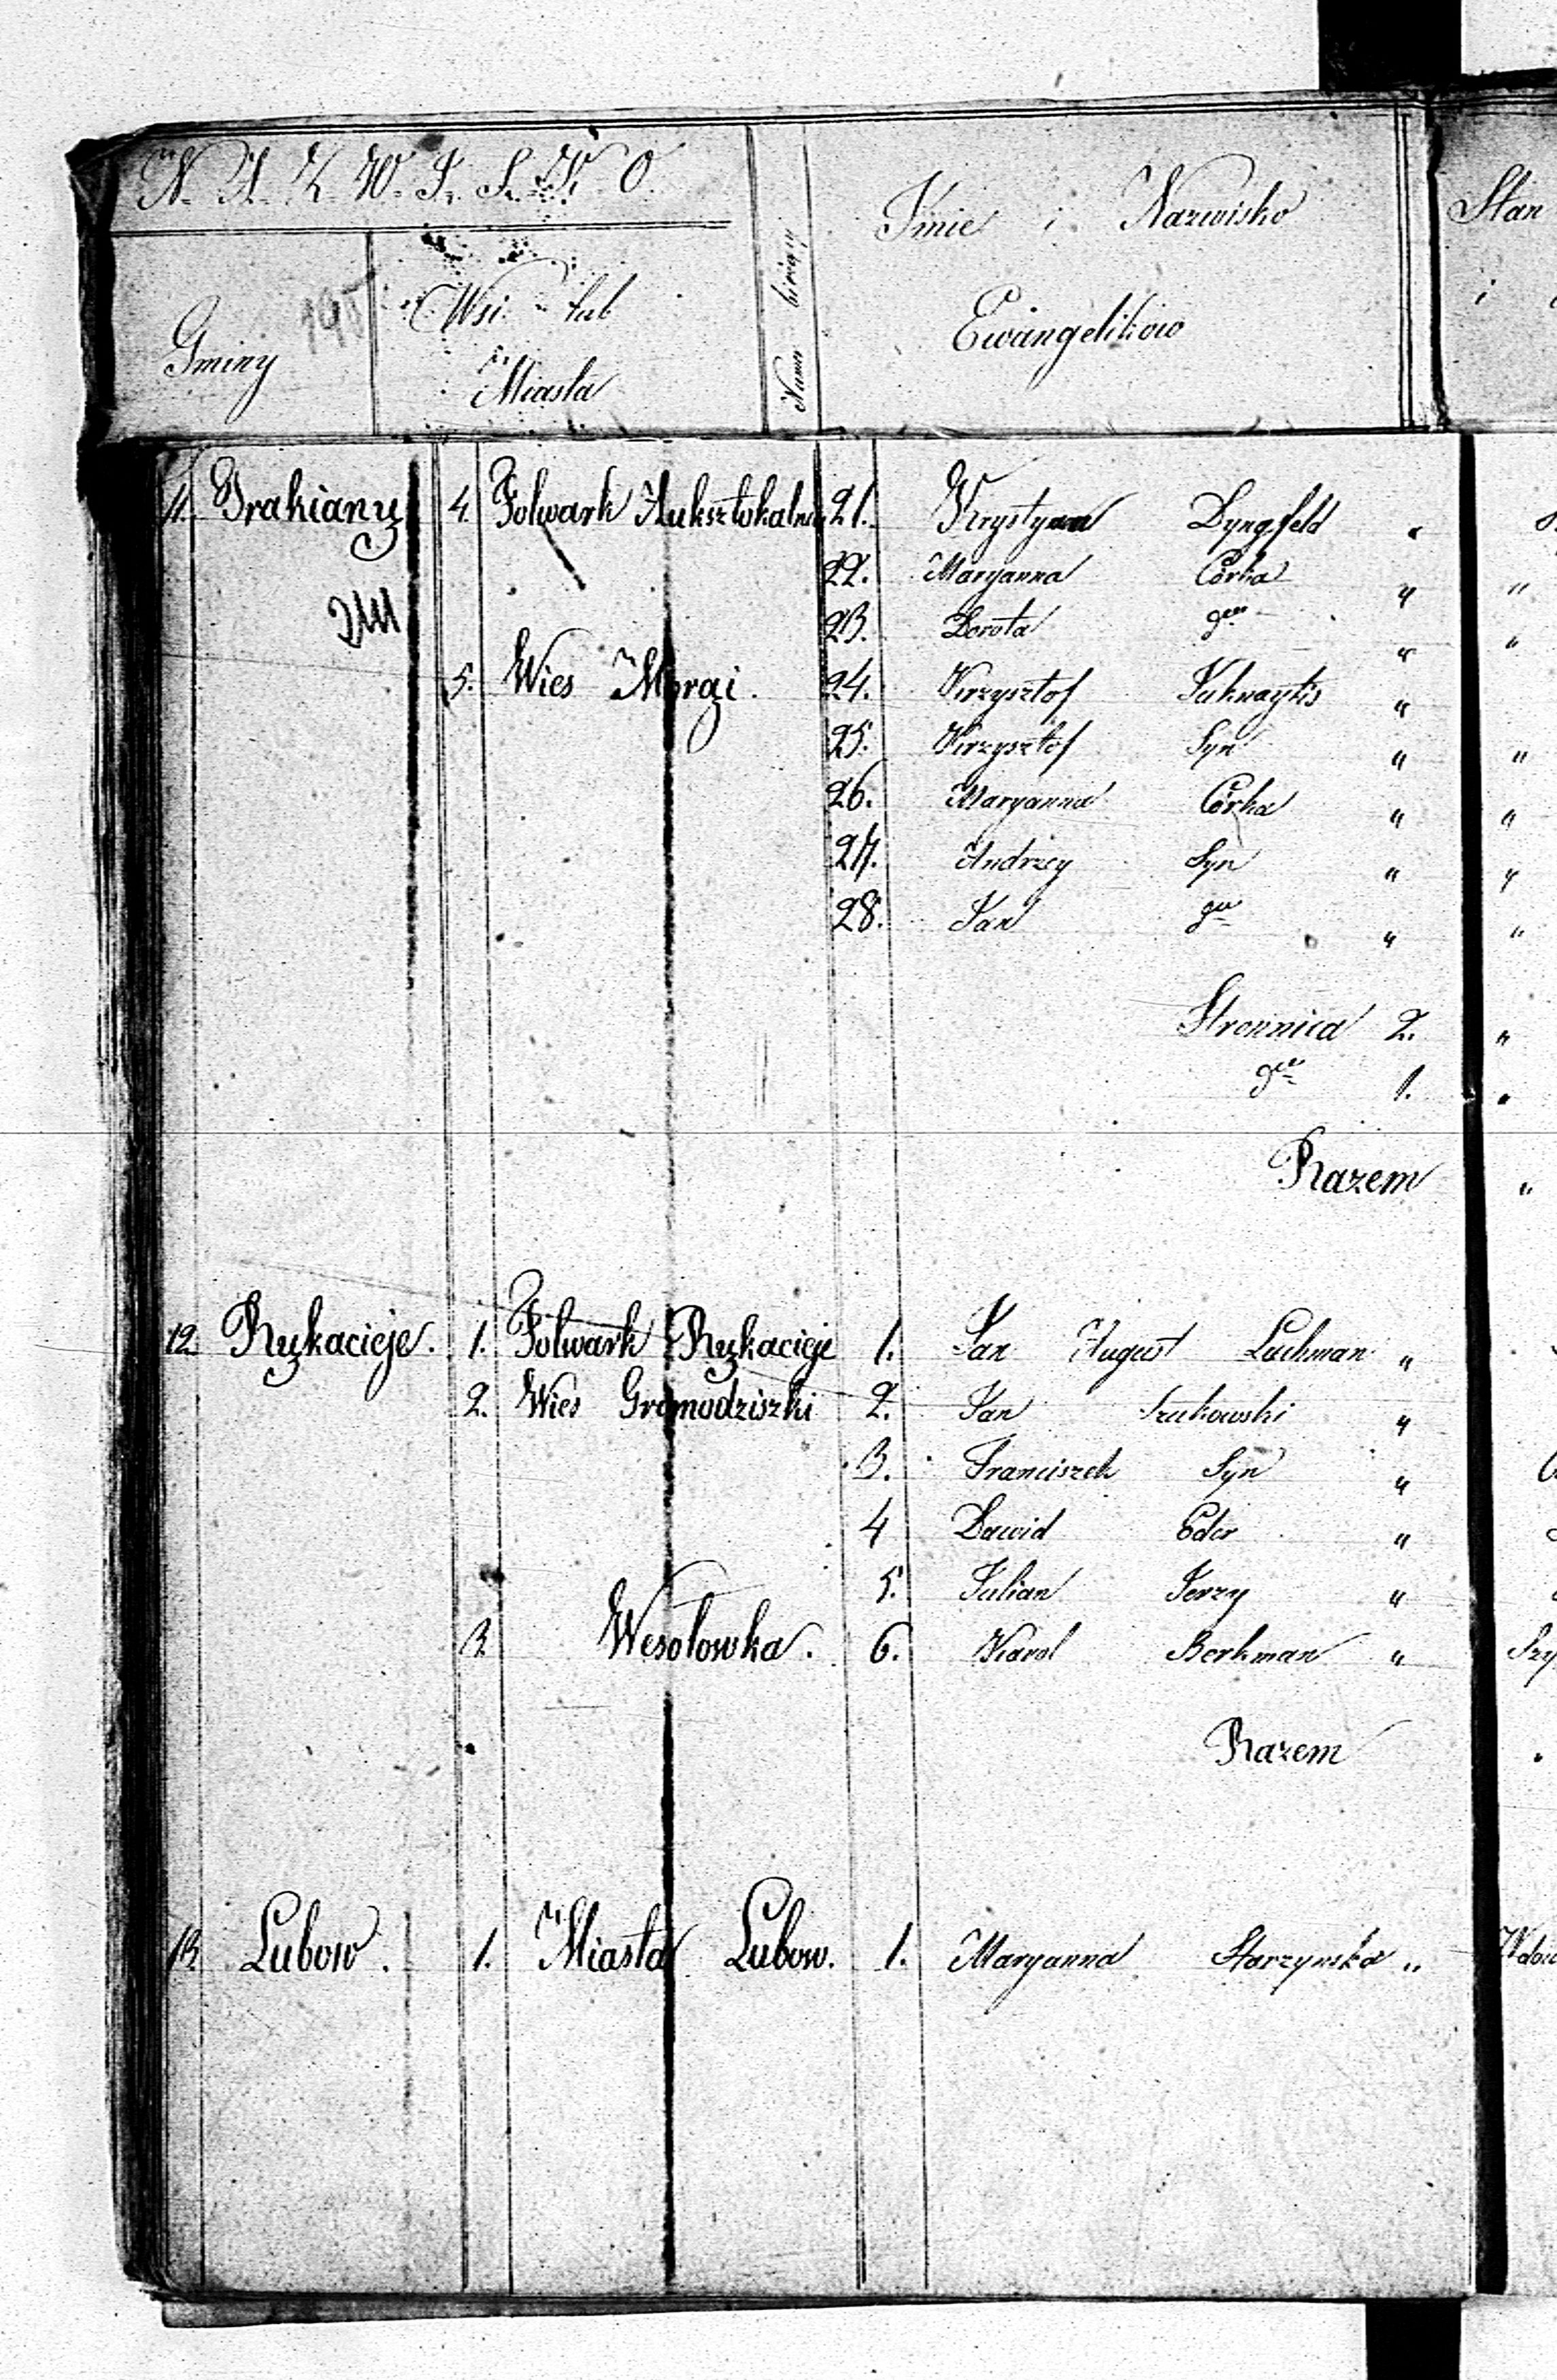 N. A. Z. W. I. S. K. O.
Gminy
Wsi lub
Miasta
Numer bieżący
Imie i Nazwisko
Ewangelikow
Stan
i
11. Trakiany 4. Folwark Auksztokalnie 21. Krystyan Dyngfeld "
22. Maryanna Córka " "
23. Dorota " "
5. Wies Morgi. 24. Krzysztof "
25. Krzysztof Syn " "
26. Maryanna Córka " "
27. Andrzey Syn " "
28. Jan " "
Stronnica 2. "
1. "
Razem "
12. Rykacieje. 1. Folwark Rykacieje 1. Jan August Luchman "
2. Wies Gromodziszki 2. Jan Szukowski "
3. Franciszek Syn "
4 Dawid Eder "
5. Julian Jerzy "
3. Wesołowka. 6. Karol Berkman " Szy
Razem
13. Lubow. 1. Miasta Lubow. 1. Maryanna Starzynska " Wdow